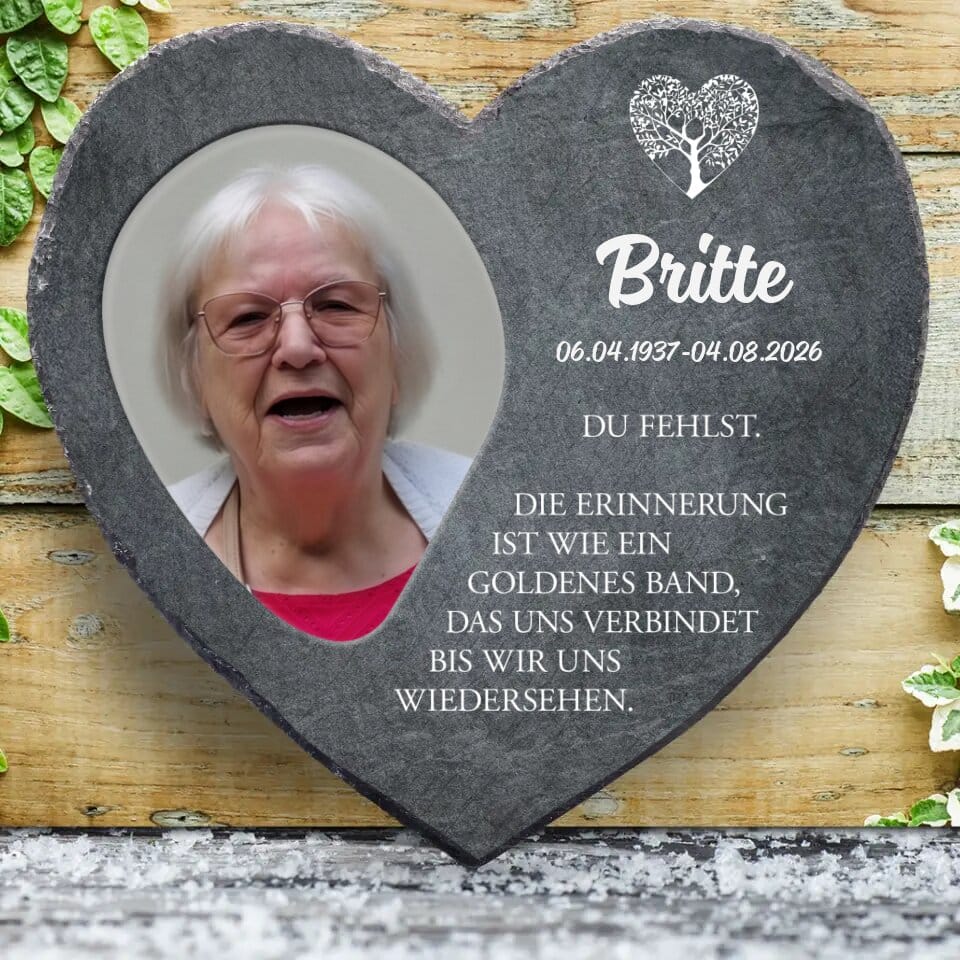 Britte
06.04.1937-04.08.2026
DU FEHLST.
DIE ERINNERUNG
IST WIE EIN
GOLDENES BAND,
DAS UNS VERBINDET
BIS WIR UNS
WIEDERSEHEN.